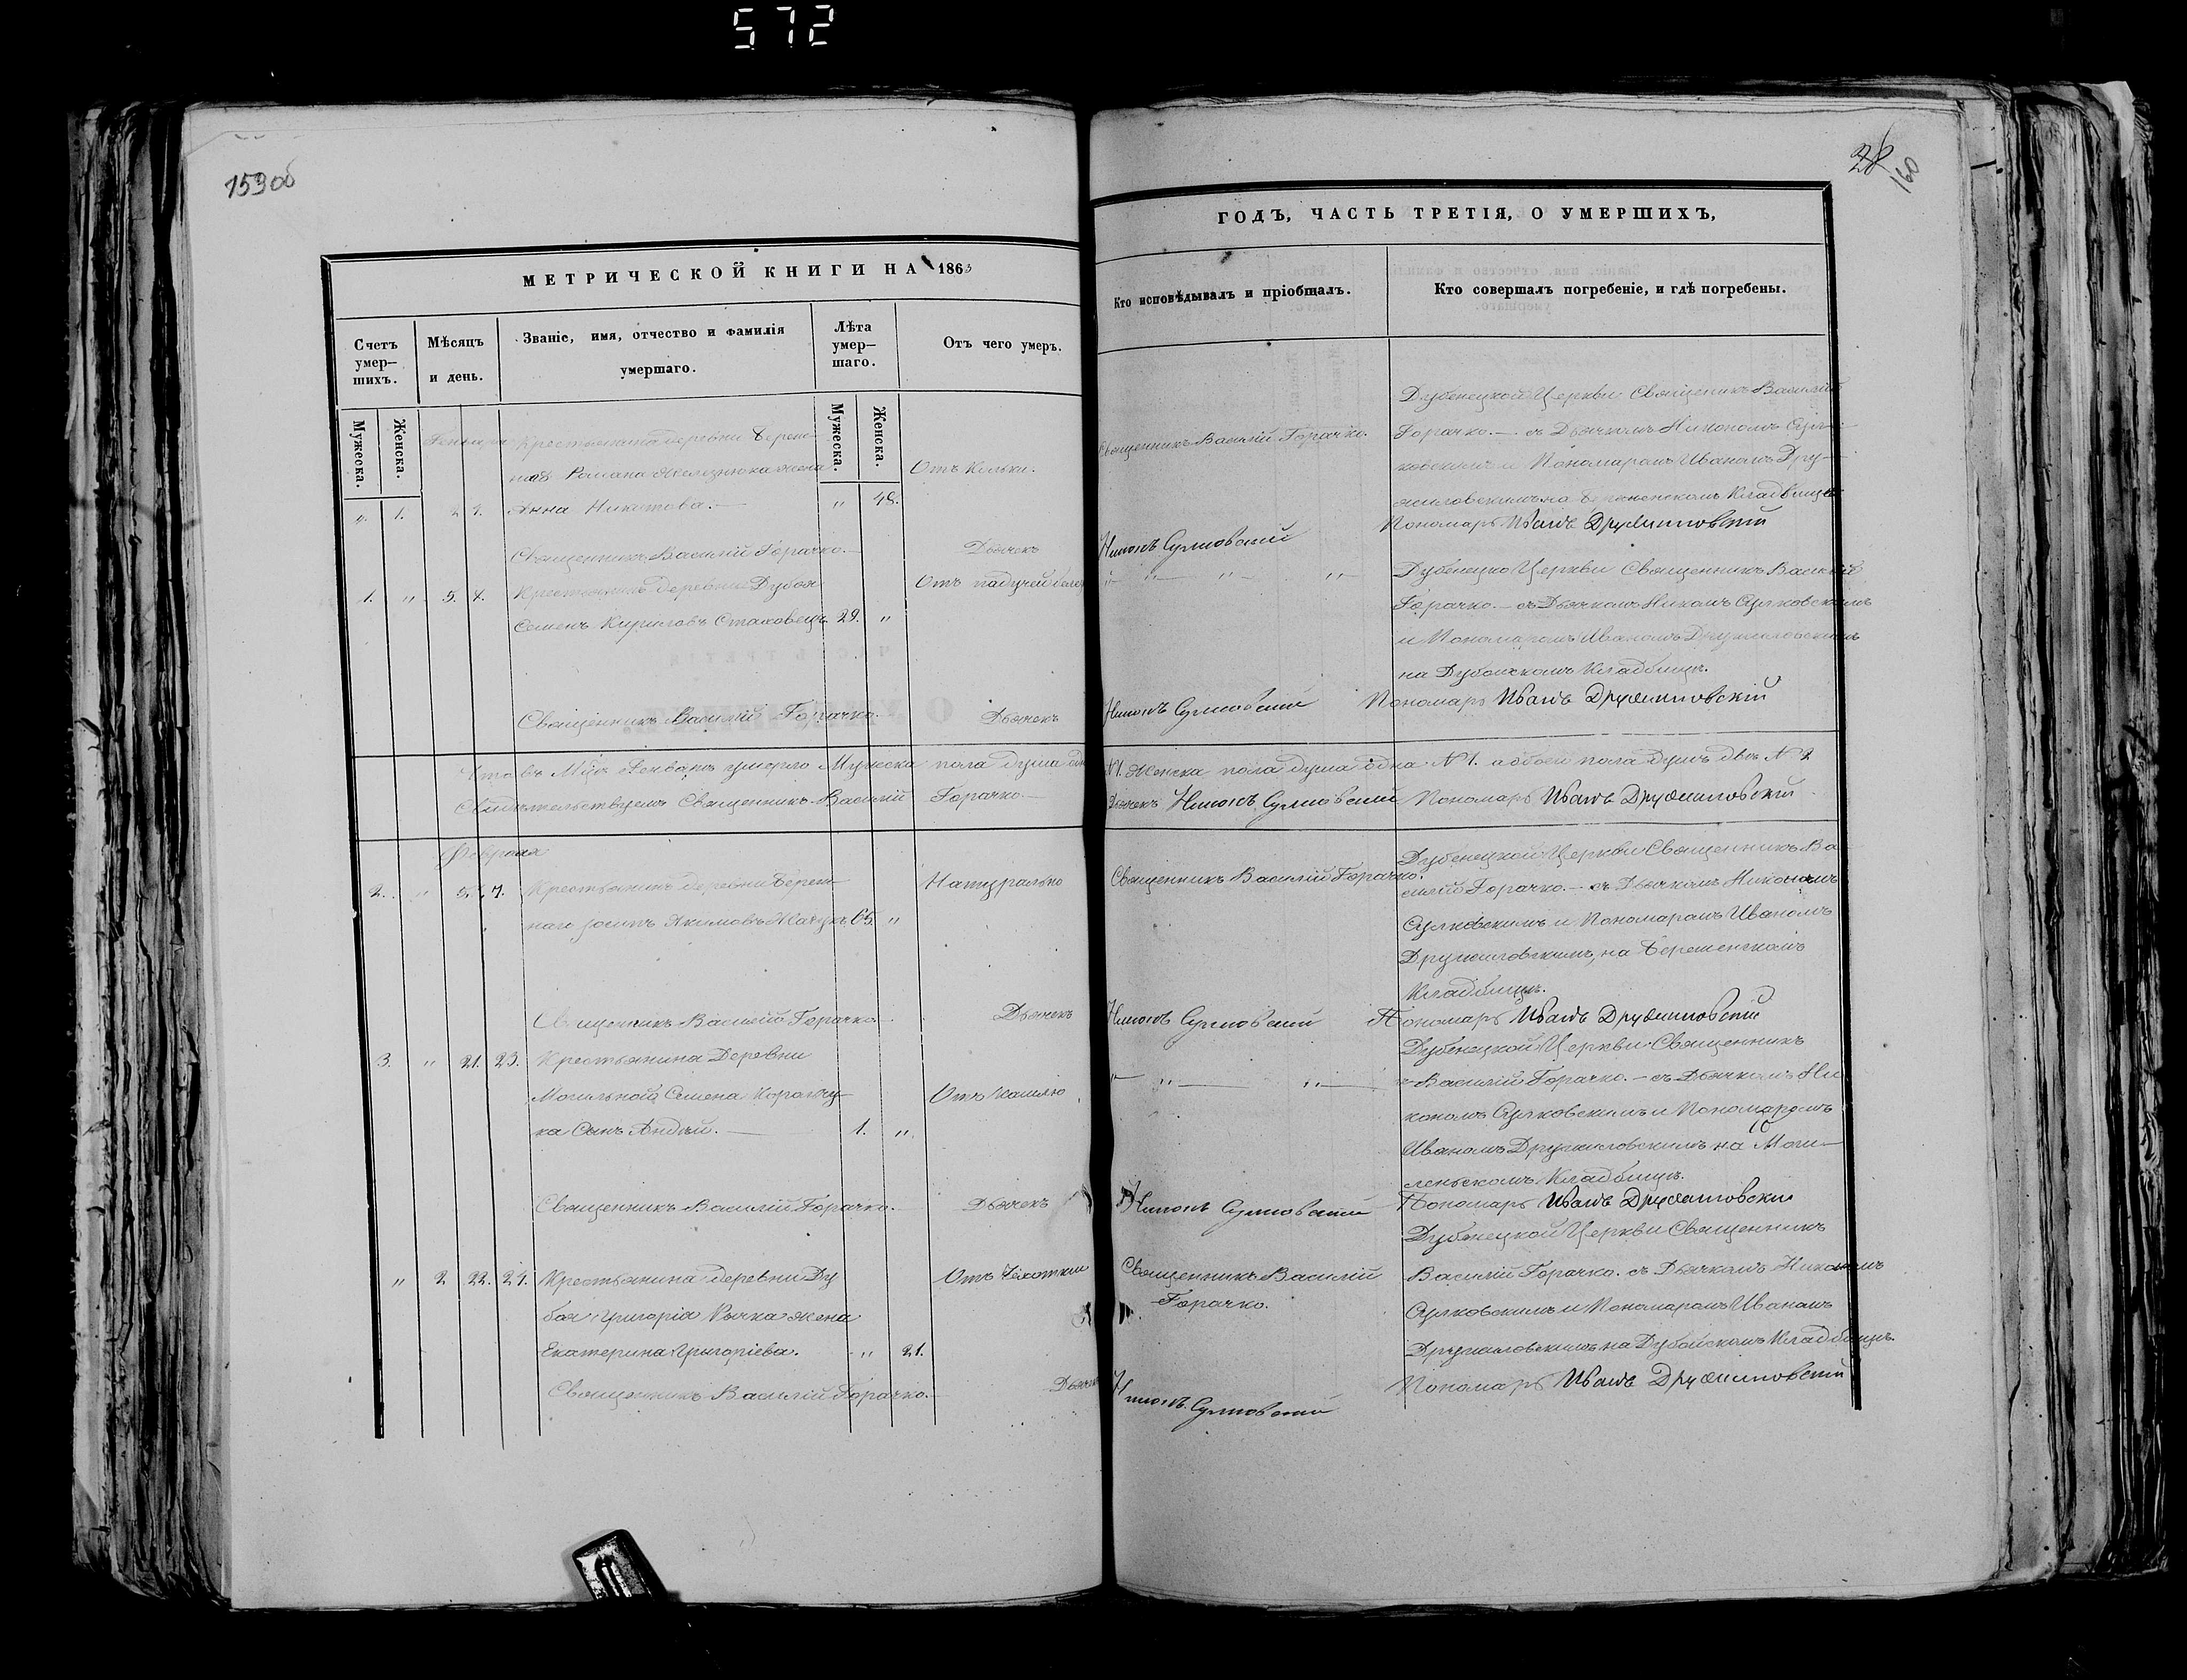 572
159 об
28
160
МЕТРИЧЕСКОЙ КНИГИ НА 1863
ГОДЪ, ЧАСТЬ ТРЕТІЯ, О УМЕРШИХЪ,
Счетъ умер—шихъ.
Мѣсяцъ и день.
Званіе, имя, отчество и фамилія умершаго.
Лѣта умер—шаго.
Отъ чего умеръ.
Кто исповѣдывалъ и пріобщалъ.
Кто совершалъ погребеніе, и гдѣ погребены.
Мужеска.
Женска.
Мужеска.
Женска.
Крестьянина деревни
Романа Железнюка жена
1. 2 4. Анна " 48.
Отъ
Священникъ Василій Горачко.
Дубенецкой Церкви Священникъ Василій
Горачко. — съ Дьячкомъ Никономъ
и Пономаромъ Иваномъ Дру—
жиловскимъ на Кладбищѣ
Священникъ Василій Горачко. — Дьячекъ Никонъ Сулковскій Пономаръ Иванъ Дружиловскій
1. " 5. 7. Крестьянинъ деревни Дубоя
Семенъ Кириловъ Стаховецъ 29. "
Отъ падучей
" " " "
Дубенецкой Церкви Священникъ Василій
Горачко. — съ Дьячкомъ Сулковскимъ
и Пономаромъ Иваномъ Дружиловскимъ
на Дубойскомъ Кладбищѣ.
Священникъ Василій Горачко. Дьячекъ Никонъ Сулковскій Пономаръ Иванъ Дружиловскій
умерло Мужеска пола душа № 1. Женска пола душа одна № 1. а обоего пола душъ двѣ № 2
Свидѣтельствуемъ Священникъ Василій Горачко — Дьячекъ Никонъ Сулковскій Пономаръ Иванъ Дружиловскій
Февраля
2. " 5. 7. Крестьянинъ деревни
Акимовъ 65 "
Натурально
Священникъ Василій Горачко.
Дубенецкой Церкви Священникъ Ва—
силій Горачко. — съ Дьячкомъ Никономъ
Сулковскимъ и Пономаромъ Иваномъ
Дружиловскимъ, на
Кладбищѣ.
Священникъ Василій Горачко Дьячекъ Никонъ Сулковскій Пономаръ Иванъ Дружиловскій
3. " 21. 23. Крестьянина Деревни
Могильной Семена Корольчу—
ка Сынъ Андрей. — 1. "
Отъ Кашлю
" " "
Дубенецкой Церкви Священникъ
Василій Горачко. — съ Дьячкомъ Ни
кономъ Сулковскимъ и Пономаромъ
Иваномъ Дружиловскимъ на Моги—
леньскомъ Кладбищѣ.
Священникъ Василій Горачко. Дьячекъ Никонъ Сулковскій Пономаръ Иванъ Дружиловскій
" 2 22. 24. Крестьянина деревни Ду
боя Григорія жена
Екатерина Григоріева. " 21.
Отъ Чахотки
Священникъ Василій
Горачко.
Дубенецкой Церкви Священникъ
Василій Горачко. съ Дьячкомъ Никономъ
Сулковскимъ и Пономаромъ Иваномъ
Дружиловскимъ на Дубойскомъ Кладбищѣ.
Священникъ Василій Горачко. Дьячекъ Никонъ Сулковскій Пономаръ Иванъ Дружиловскій